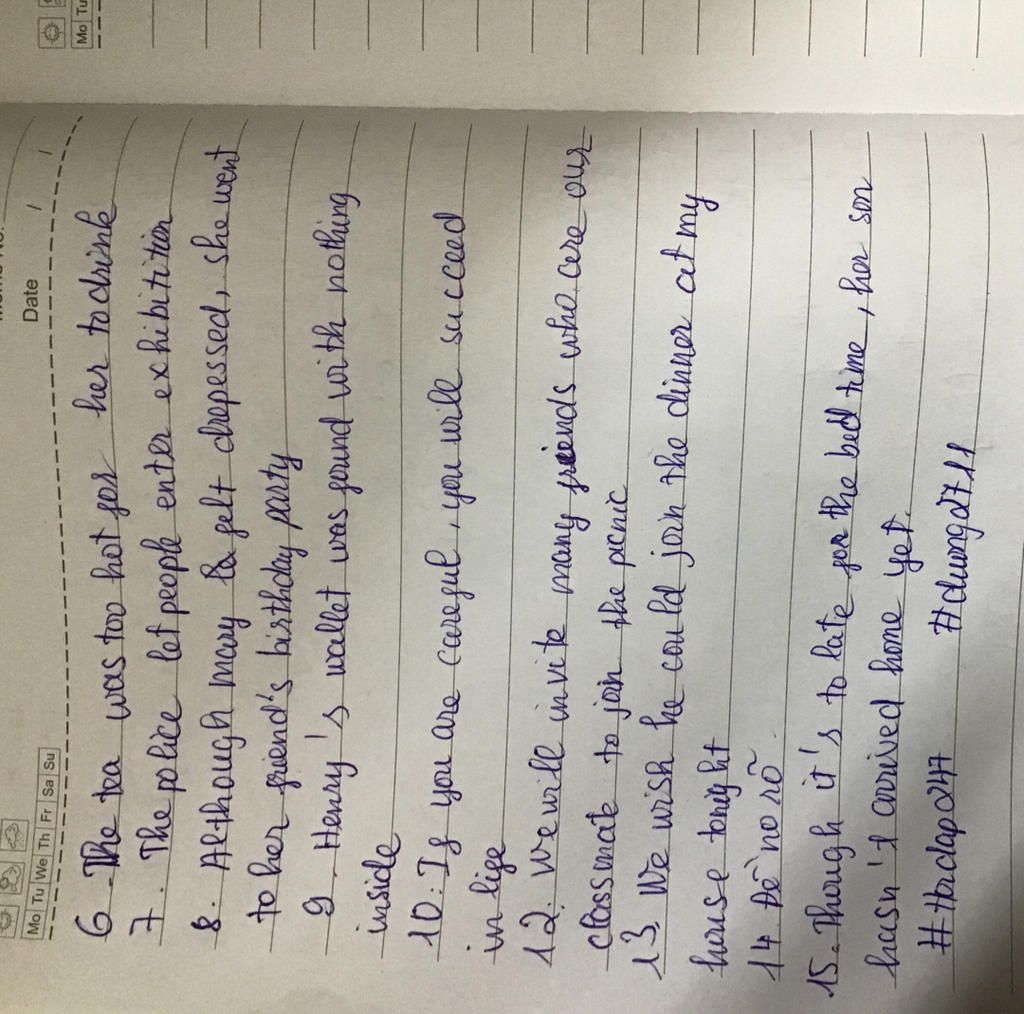 Mo Tu
Date / /
Mo Tu We Th Fr Sa Su
6. The tea was too hot for her to drink
7. The police let people enter exhibitition
8. Although mary felt drepessed, she went
to her friend's birthday party
9. Henry's wallet was found with nothing
inside
10. If you are careful, you will succeed
in life
12. We will invite many friends who are our
classmate to join the picnic
13. We wish he could join the dinner at my
house tonight
14 Đề no rõ
15. Though it's to late for the bed time, her son
hasn't arrived home yet.
#Hoidap247 #dung2711